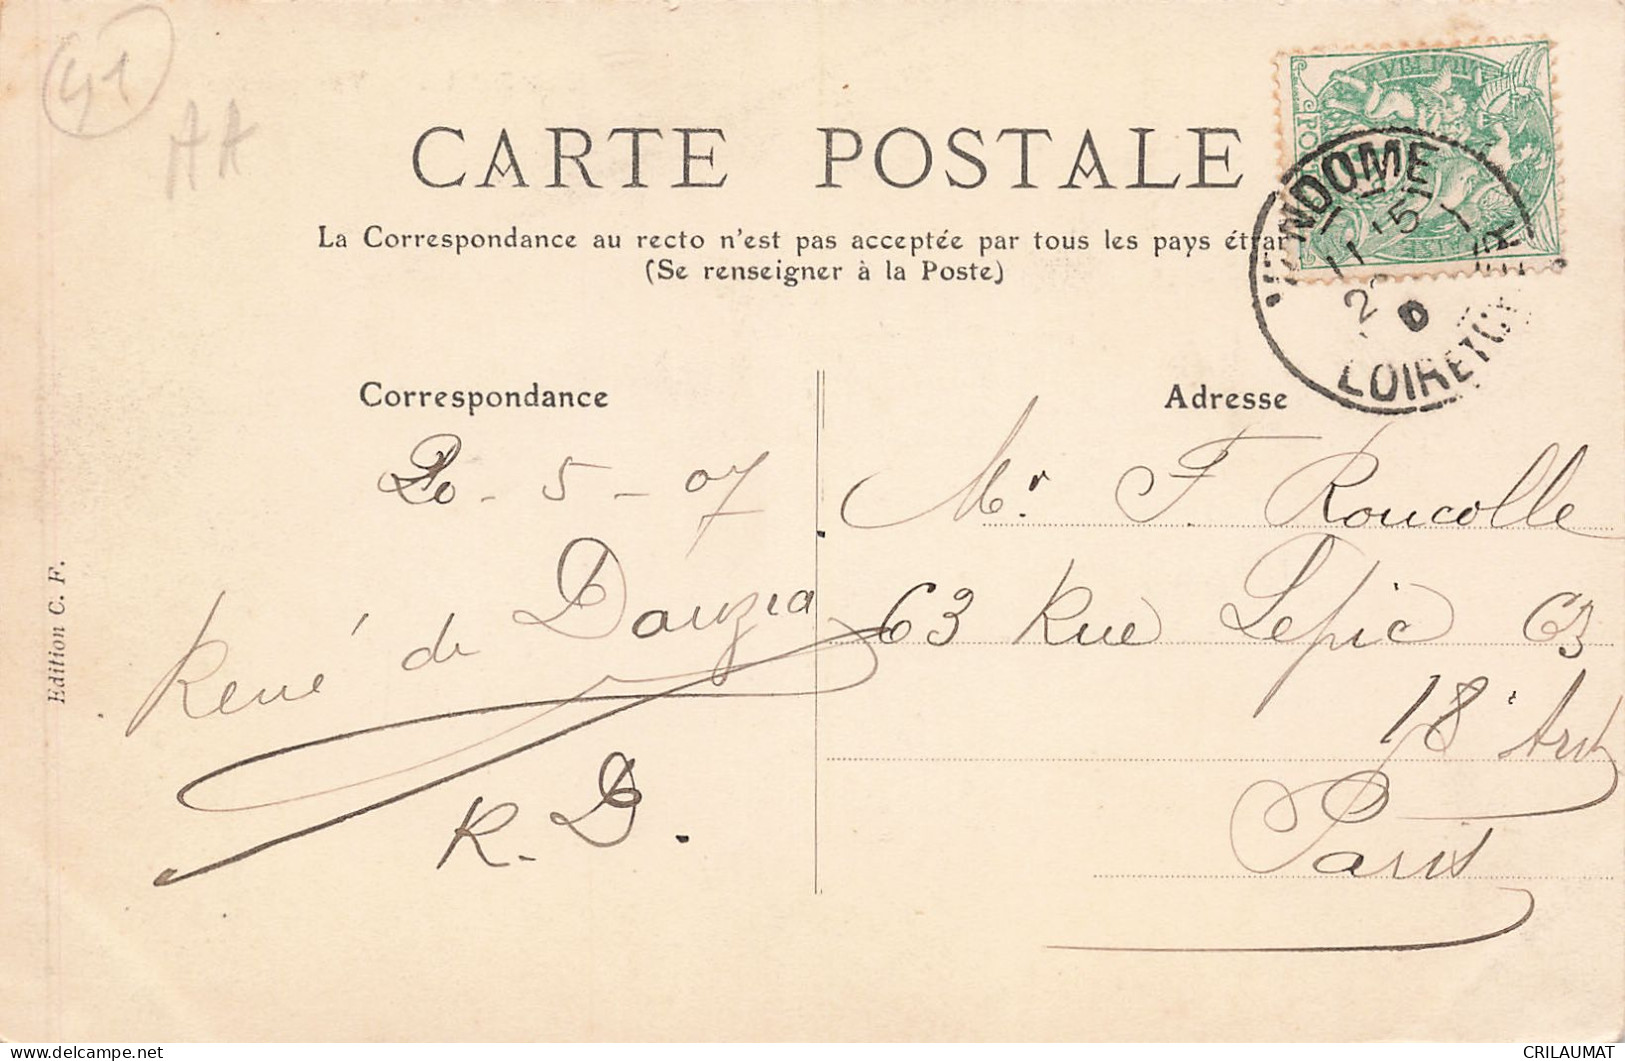 41
AA
CARTE POSTALE
La Correspondance au recto n'est pas acceptée par tous les pays étran
(Se renseigner à la Poste)
VENDOME
11 15
LOIR ET CHER
Correspondance
Adresse
20 - 5 - 07
René de Dauzea
R. D.
Mr. F. Roucolle
63 Rue Lepic 63
18e Arrt
Paris
Edition C. F.
CRILAUMAT